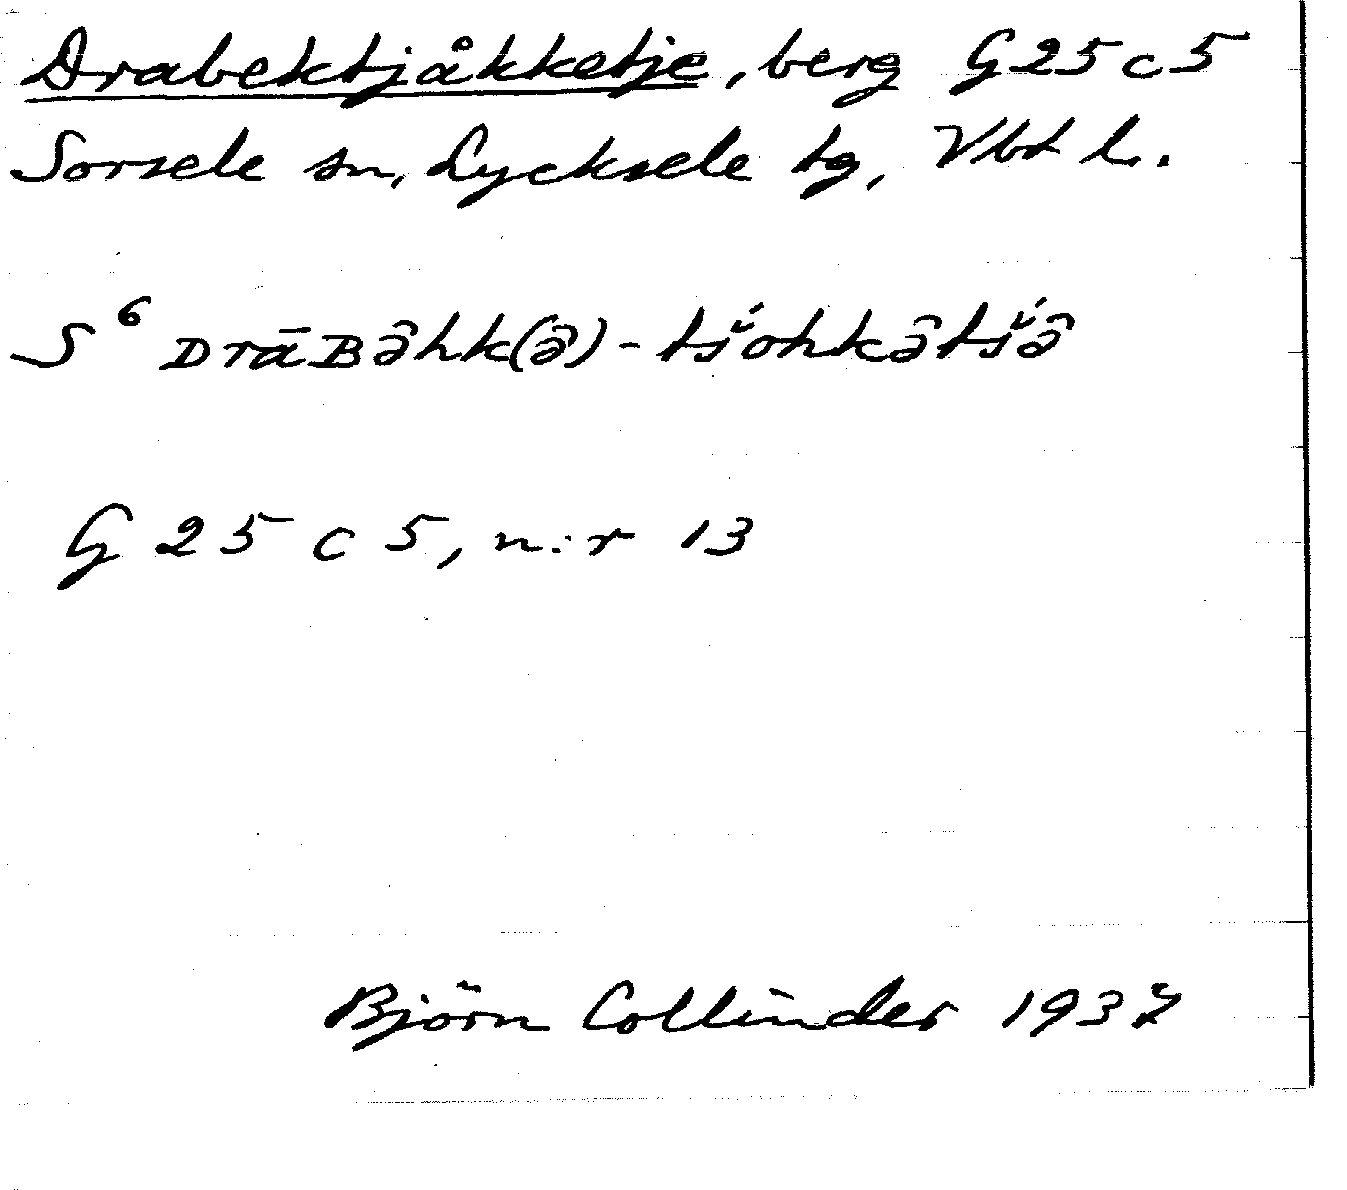 Drabektjåkketje, berg G25c5
Sorsele sn, Lycksele tg, Vbt l.
S⁶ ᴅrāʙə̂hk(ə̂)-tš́ohkə̂tš́ə̂
G 25 c 5, n:r 13
Björn Collinder 1937